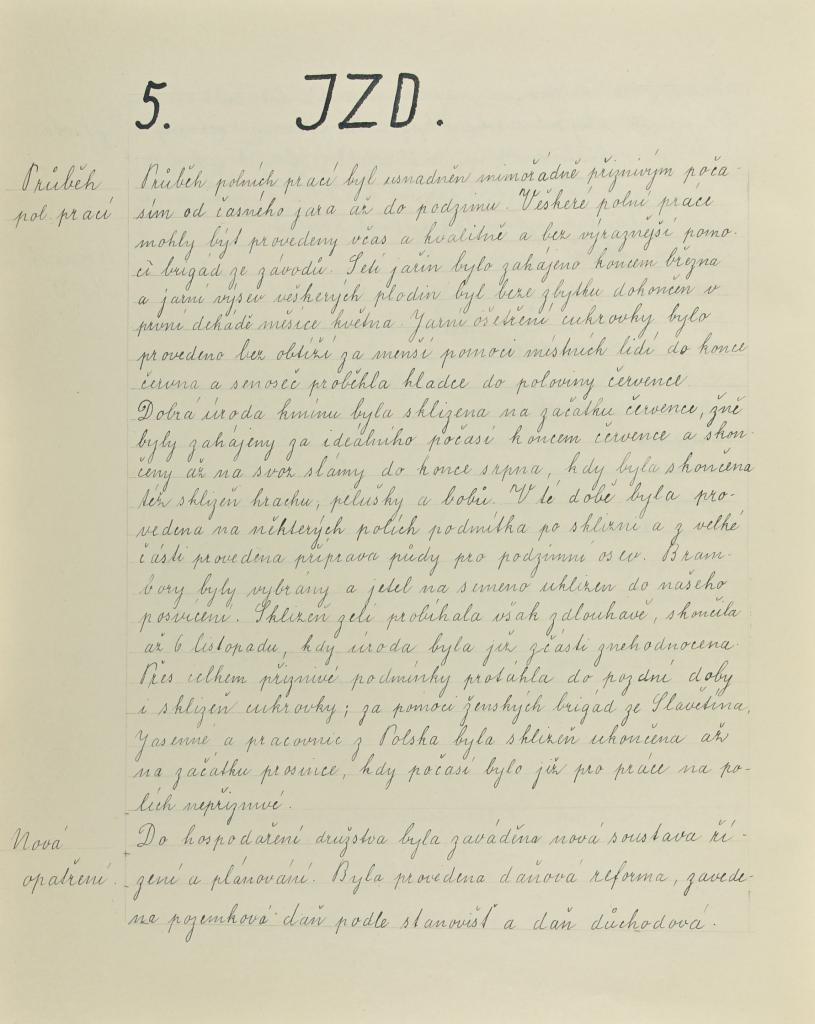 5. JZD.
Průběh
pol. prací
Průběh polních prací byl usnadněn mimořádně příznivým poča-
sím od časného jara až do podzimu. Veškeré polní práce
mohly být provedeny včas a kvalitně a bez výraznější pomo-
ci brigád ze závodů. Setí jařin bylo zahájeno koncem března
a jarní výsev veškerých plodin byl beze zbytku dokončen v
první dekádě měsíce května. Jarní ošetření cukrovky bylo
provedeno bez obtíží za menší pomoci místních lidí do konce
června a senoseč proběhla hladce do poloviny července.
Dobrá úroda kmínu byla sklizena na začátku července, žně
byly zahájeny za ideálního počasí koncem července a skon-
čeny až na svoz slámy do konce srpna, kdy byla skončena
též sklizeň hrachu, pelušky a bobů. V té době byla pro-
vedena na některých polích podmítka po sklizni a z velké
části provedena příprava půdy pro podzimní osev. Bram-
bory byly vybrány a jetel na semeno uklizen do našeho
posvícení. Sklizeň zelí probíhala však zdlouhavě, skončila
až 6 listopadu, kdy úroda byla již zčásti znehodnocena.
Přes celkem příznivé podmínky protáhla do pozdní doby
i sklizeň cukrovky; za pomoci ženských brigád ze Slavětína,
Jasenné a pracovnic z Polska byla sklizeň ukončena až
na začátku prosince, kdy počasí bylo již pro práce na po-
lích nepříznivé.
Nová
opatření.
Do hospodaření družstva byla zaváděna nová soustava ří-
zení a plánování. Byla provedena daňová reforma, zavede-
na pozemková daň podle stanovišť a daň důchodová.